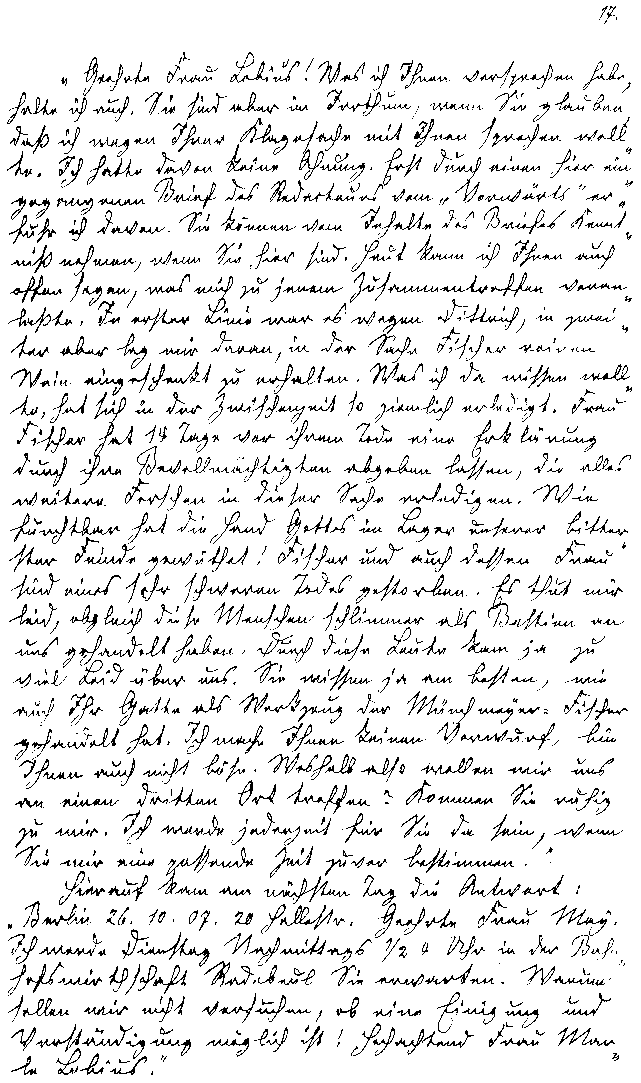 17.
„Geehrte Frau Lebius! Was ich Ihnen versprochen habe,
halte ich auch. Sie sind aber im Irrthum, wenn Sie glauben
daß ich wegen Ihrer Klagesache mit Ihnen sprechen woll„
te. Ich hatte davon keine Ahnung. Erst durch einen hier ein„
gegangenen Brief des Redacteurs vom „Vorwärts“ er„
fuhr ich davon. Sie können vom Inhalte des Briefes Kennt„
niß nehmen, wenn Sie hier sind. Heut kann ich Ihnen auch
offen sagen, was mich zu jenem Zusammentreffen veran„
laßte. In erster Linie war es wegen Dittrich, in zwei„
ter aber lag mir daran, in der Sache Fischer reinen
Wein eingeschenkt zu erhalten. Was ich da wissen woll„
te, hat sich in der Zwischenzeit so ziemlich erledigt. Frau
Fischer hat 14 Tage vor ihrem Tode eine Erklärung
durch ihre Bevollmächtigten abgeben lassen, die alles
weitere Forschen in dieser Sache erledigen. Wie
furchtbar hat die Hand Gottes im Lager unserer bitter„
ster Feinde gewüthet! Fischer und auch dessen Frau
sind eines sehr schweren Todes gestorben. Es thut mir
leid, obgleich diese Menschen schlimmer als Bestien an
uns gehandelt haben. Durch diese Leute kam ja zu
viel Leid über uns. Sie wissen ja am besten, wie
auch Ihr Gatte als Werkzeug der Münchmeyer= Fischer
gehandelt hat. Ich mache Ihnen keinen Vorwurf, bin
Ihnen auch nicht böse. Weshalb also wollen wir uns
an einen dritten Ort treffen? Kommen Sie ruhig
zu mir. Ich werde jederzeit für Sie da sein, wenn
Sie mir eine passende Zeit zuvor bestimmen.“
Hierauf kam am nächsten Tag die Antwort:
„Berlin 26. 10. 07. 20 Hallestr. Geehrte Frau May.
Ich werde Dienstag Nachmittags 1/2 4 Uhr in der Bah„
hofswirthschaft Radebeul Sie erwarten. Warum
sollen wir nicht versuchen, ob eine Einigung und
Verständigung möglich ist! Hochachtend Frau Mar„
tha Lebius.“